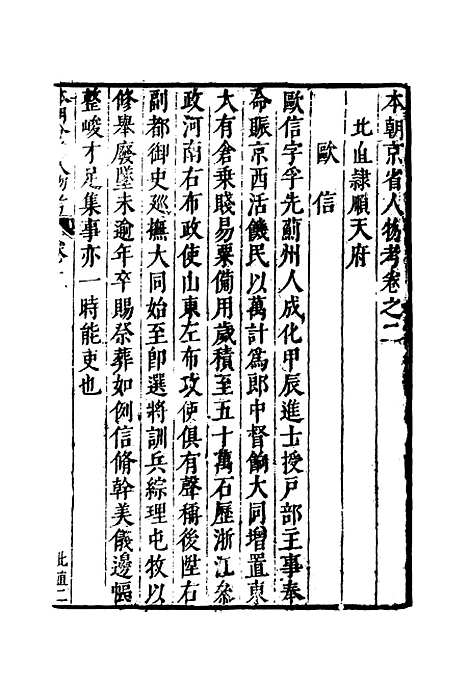 本朝京省人物考卷之二
北直隸順天府
歐信
歐信字孚先薊州人成化甲辰進士授戶部主事奉
命賑京西活饑民以萬計爲郎中督餉大同增置東
大有倉乗賤易粟備用歲積至五十萬石歷浙江叅
政河南右布政使山東左布政使俱有聲稱後陞右
副都御史廵撫大同始至卽選將訓兵綜理屯牧以
修舉廢墜未逾年卒賜祭葬如例信脩幹美儀邊幅
整峻才足集事亦一時能吏也
北直二